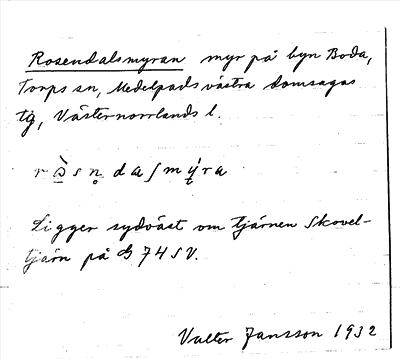 Rosendalsmyran myr på byn Boda,
Torps sn, Medelpads västra domsagas
tg, Västernorrlands l.
Ligger sydväst om tjärnen Skovel-
tjärn på G 74 SV.
Valter Jansson 1932